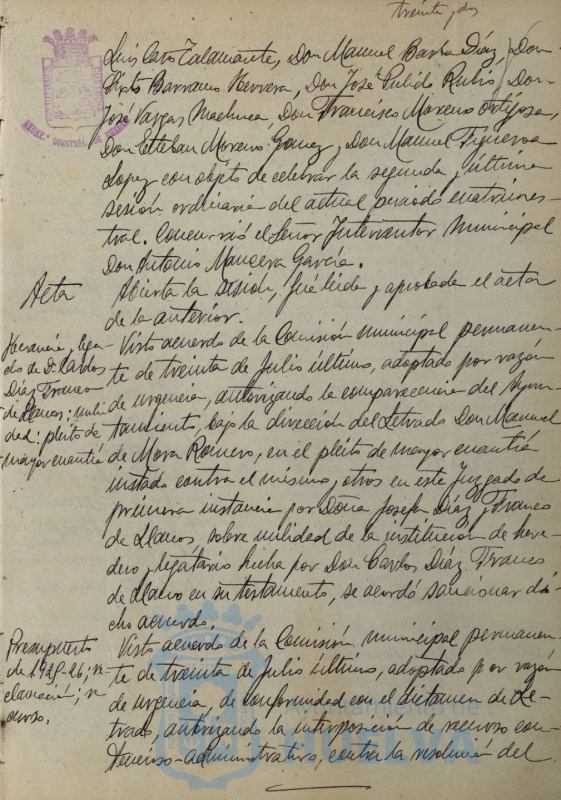 treinta y dos
Luis Cato Talamante, Don Manuel Barba Díaz, Don
Sixto Barranco Herrera, Don José Pulido Rubio, Don
José Vargas Machuca, Don Francisco Moreno Ortijosa,
Don Esteban Moreno Gomez y Don Manuel Figueroa
Lopez con objeto de celebrar la segunda y última
sesión ordinaria del actual periodo cuatrimes-
tral. Concurrió el Señor Interventor Municipal
Don Antonio Mancera García.
Acta
Abierta la sesion, fué leida y aprobada el acta
de la anterior.
Herencia y lega-
do de D. Carlos
Díaz Franco
de Llanos; nuli-
dad: pleito de
mayor cuantía
Visto acuerdo de la Comisión municipal permanen-
te de treinta de Julio último, adoptado por razón
de urgencia, autorizando la comparecencia del Ayun-
tamiento, bajo la dirección del Letrado Don Manuel
de Mora Romero, en el pleito de mayor cuantía
instado contra el mismo y otros en este Juzgado de
primera instancia por Doña Josefa Díaz y Franco
de Llanos, sobre nulidad de la institución de here-
dero y legatario hecha por Don Carlos Díaz Franco
de Llano en su testamento, se acordó sancionar di-
cho acuerdo.
Presupuesto
de 1925-26; re-
clamación; re-
curso.
Visto acuerdo de la Comisión municipal permanen-
te de treinta de Julio último, adoptado por razón
de urgencia, de conformidad con el dictamen de Le-
trado, autorizando la interposición de recurso con-
tencioso-administrativo, contra la resolución del
Ayuntamiento de
HUELVA